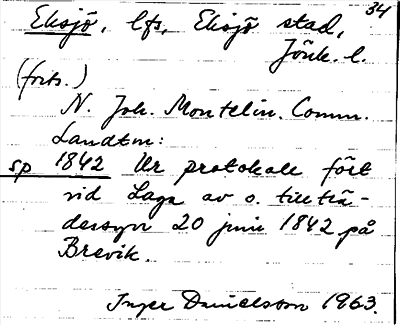 34
Eksjö, lfs, Eksjö stad,
Jönk. l.
(forts.)
N. Joh. Montelin. Comm.
Landtm:
sp 1842 Ur protokall fört
vid Laga av o. tillträ-
dessyn 20 juni 1842 på
Brevik.
Inger Danielsson 1963.